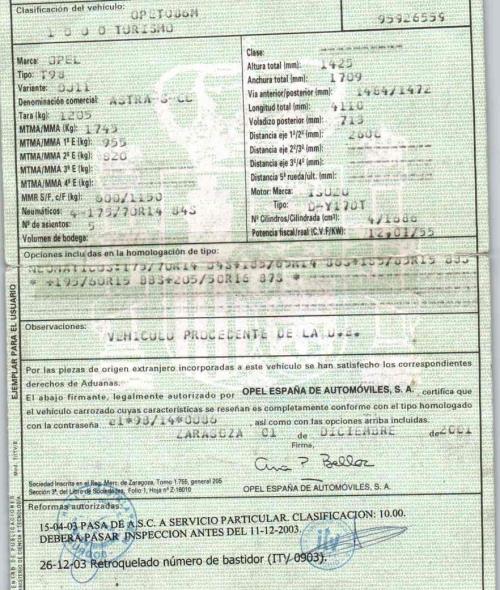 Clasificación del vehículo:
95926559
1 0 0 0 TURISMO
Marca: OPEL
Tipo: T98
Variante: DJ11
Denominación comercial: ASTRA-G-CC
Tara (kg): 1205
MTMA/MMA (Kg): 1745
MTMA/MMA 1º E (kg): 955
MTMA/MMA 2º E (kg): 820
MTMA/MMA 3º E (kg):
MTMA/MMA 4º E (kg):
MMR S/F, c/F (kg): 600/1150
Neumáticos: 4-175/70R14 84S
Nº de asientos: 5
Volumen de bodega:
Clase:
Altura total (mm): 1425
Anchura total (mm): 1709
Vía anterior/posterior (mm): 1484/1472
Longitud total (mm): 4110
Voladizo posterior (mm): 713
Distancia eje 1º/2º (mm):
Distancia eje 2º/3º (mm):
Distancia eje 3º/4º (mm):
Distancia 5ª rueda/últ. (mm):
Motor: Marca: ISUZU
Tipo: D-Y17DT
Nº Cilindros/Cilindrada (cm³): 4/1686
Potencia fiscal/real (C.V.F/KW): 12,01/55
Opciones incluidas en la homologación de tipo:
NEUMATICOS:175/70R14 84S+185/65R15 88S+195/60R15 88S
* +195/60R15 88S+205/50R16 87S *
EJEMPLAR PARA EL USUARIO
Observaciones:
VEHICULO PROCEDENTE DE LA U.E.
Por las piezas de origen extranjero incorporadas a este vehículo se han satisfecho los correspondientes
derechos de Aduanas.
El abajo firmante, legalmente autorizado por OPEL ESPAÑA DE AUTOMÓVILES, S. A. , certifica que
el vehículo carrozado cuyas características se reseñan es completamente conforme con el tipo homologado
con la contraseña e1*98/14*0086 así como con las opciones arriba incluidas.
ZARAGOZA 01 de DICIEMBRE de 2001
Firma,
Sociedad Inscrita en el Reg. Merc. de Zaragoza, Tomo 1.755, general 205
Sección 3ª, del Libro de Sociedades, Folio 1, Hoja nº Z-16010
OPEL ESPAÑA DE AUTOMÓVILES, S. A.
Reformas autorizadas:
15-04-03 PASA DE A.S.C. A SERVICIO PARTICULAR. CLASIFICACION: 10.00.
DEBERA PASAR INSPECCION ANTES DEL 11-12-2003.
26-12-03 Retroquelado número de bastidor (ITV 0903).
itv